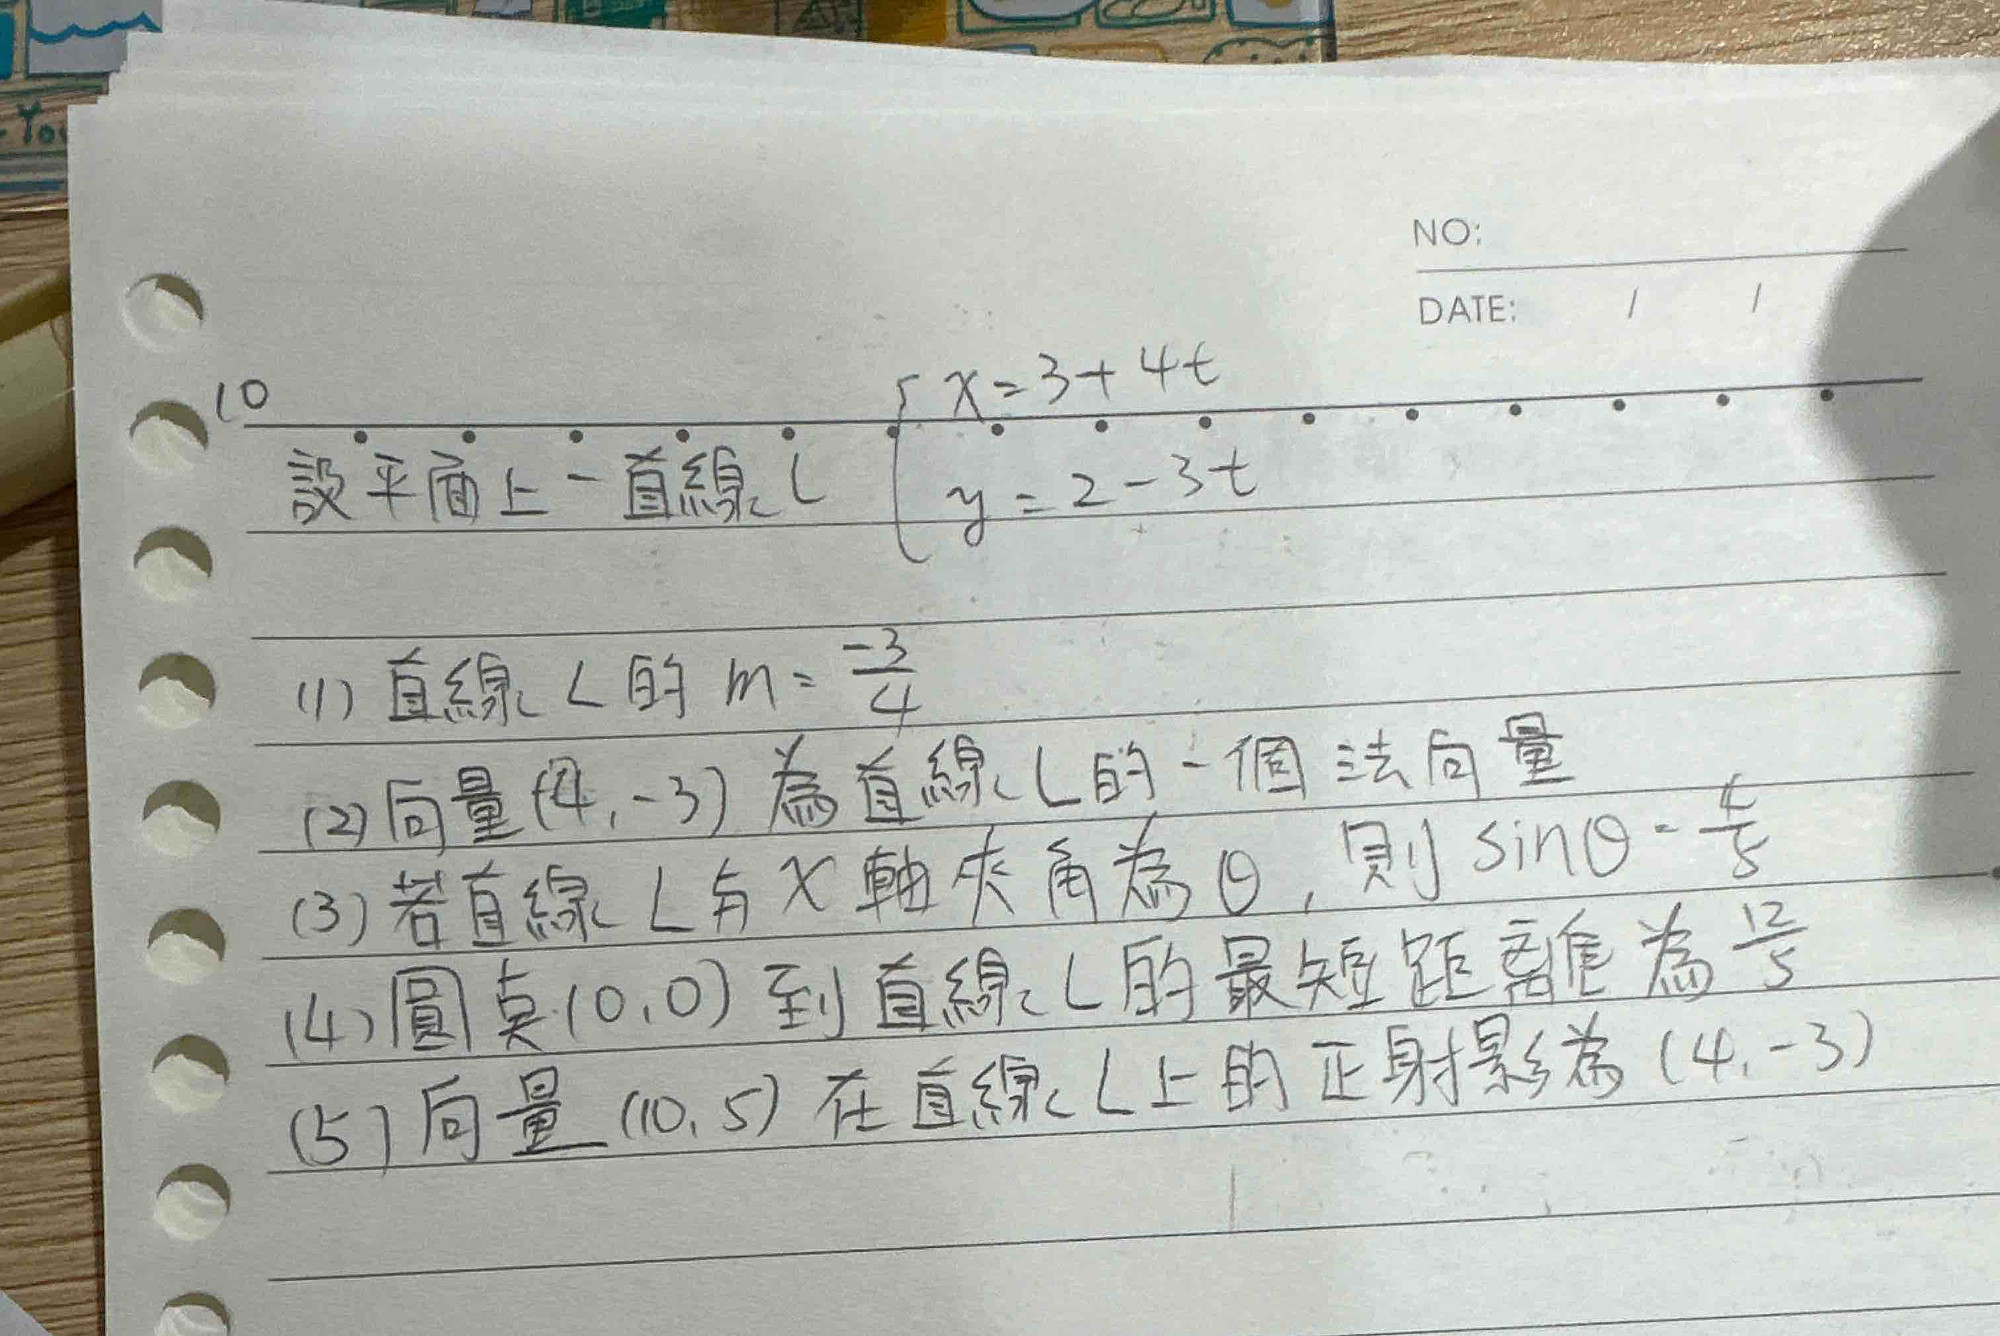 You
NO:
DATE: / /
10
x=3+4t
設平面上一直線L
y=2-3t
(1) 直線L的 m=-3/4
(2) 向量(4,-3) 為直線L的一個法向量
(3) 若直線L與X軸夾角為θ,則 sinθ=4/5
(4) 圓點(0,0) 到直線L的最短距離為12/5
(5) 向量(10,5) 在直線L上的正射影為(4,-3)